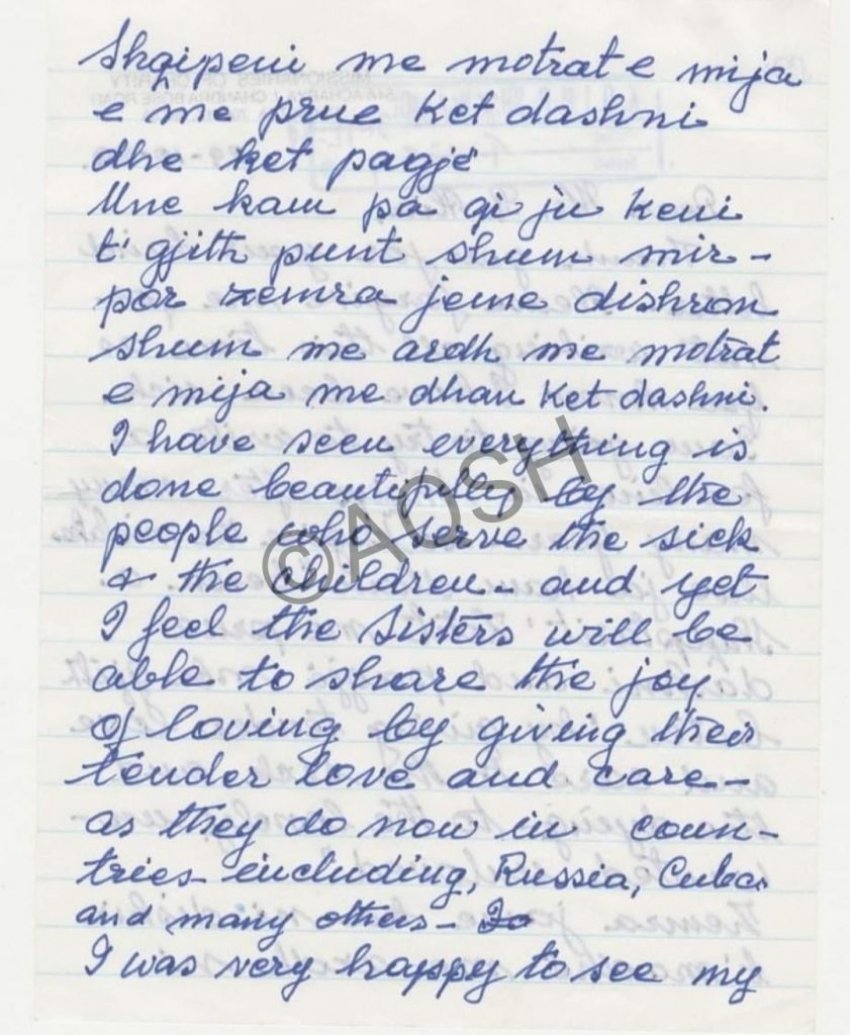 Shqipeni me motrat e mija
e me prue Ket dashni
dhe ket pagjë
Une kam pa qi ju Keni
t' gjith punt shum mir-
por zemra jeme dishron
shum me ardh me motrat
e mija me dhan Ket dashni.
I have seen everything is
done beautifully by the
people who serve the sick
& the children - and yet
I feel the Sisters will be
able to share the joy
of loving by giving their
tender love and care -
as they do now in coun-
tries including, Russia, Cuba
and many others -
I was very happy to see my
©AQSH